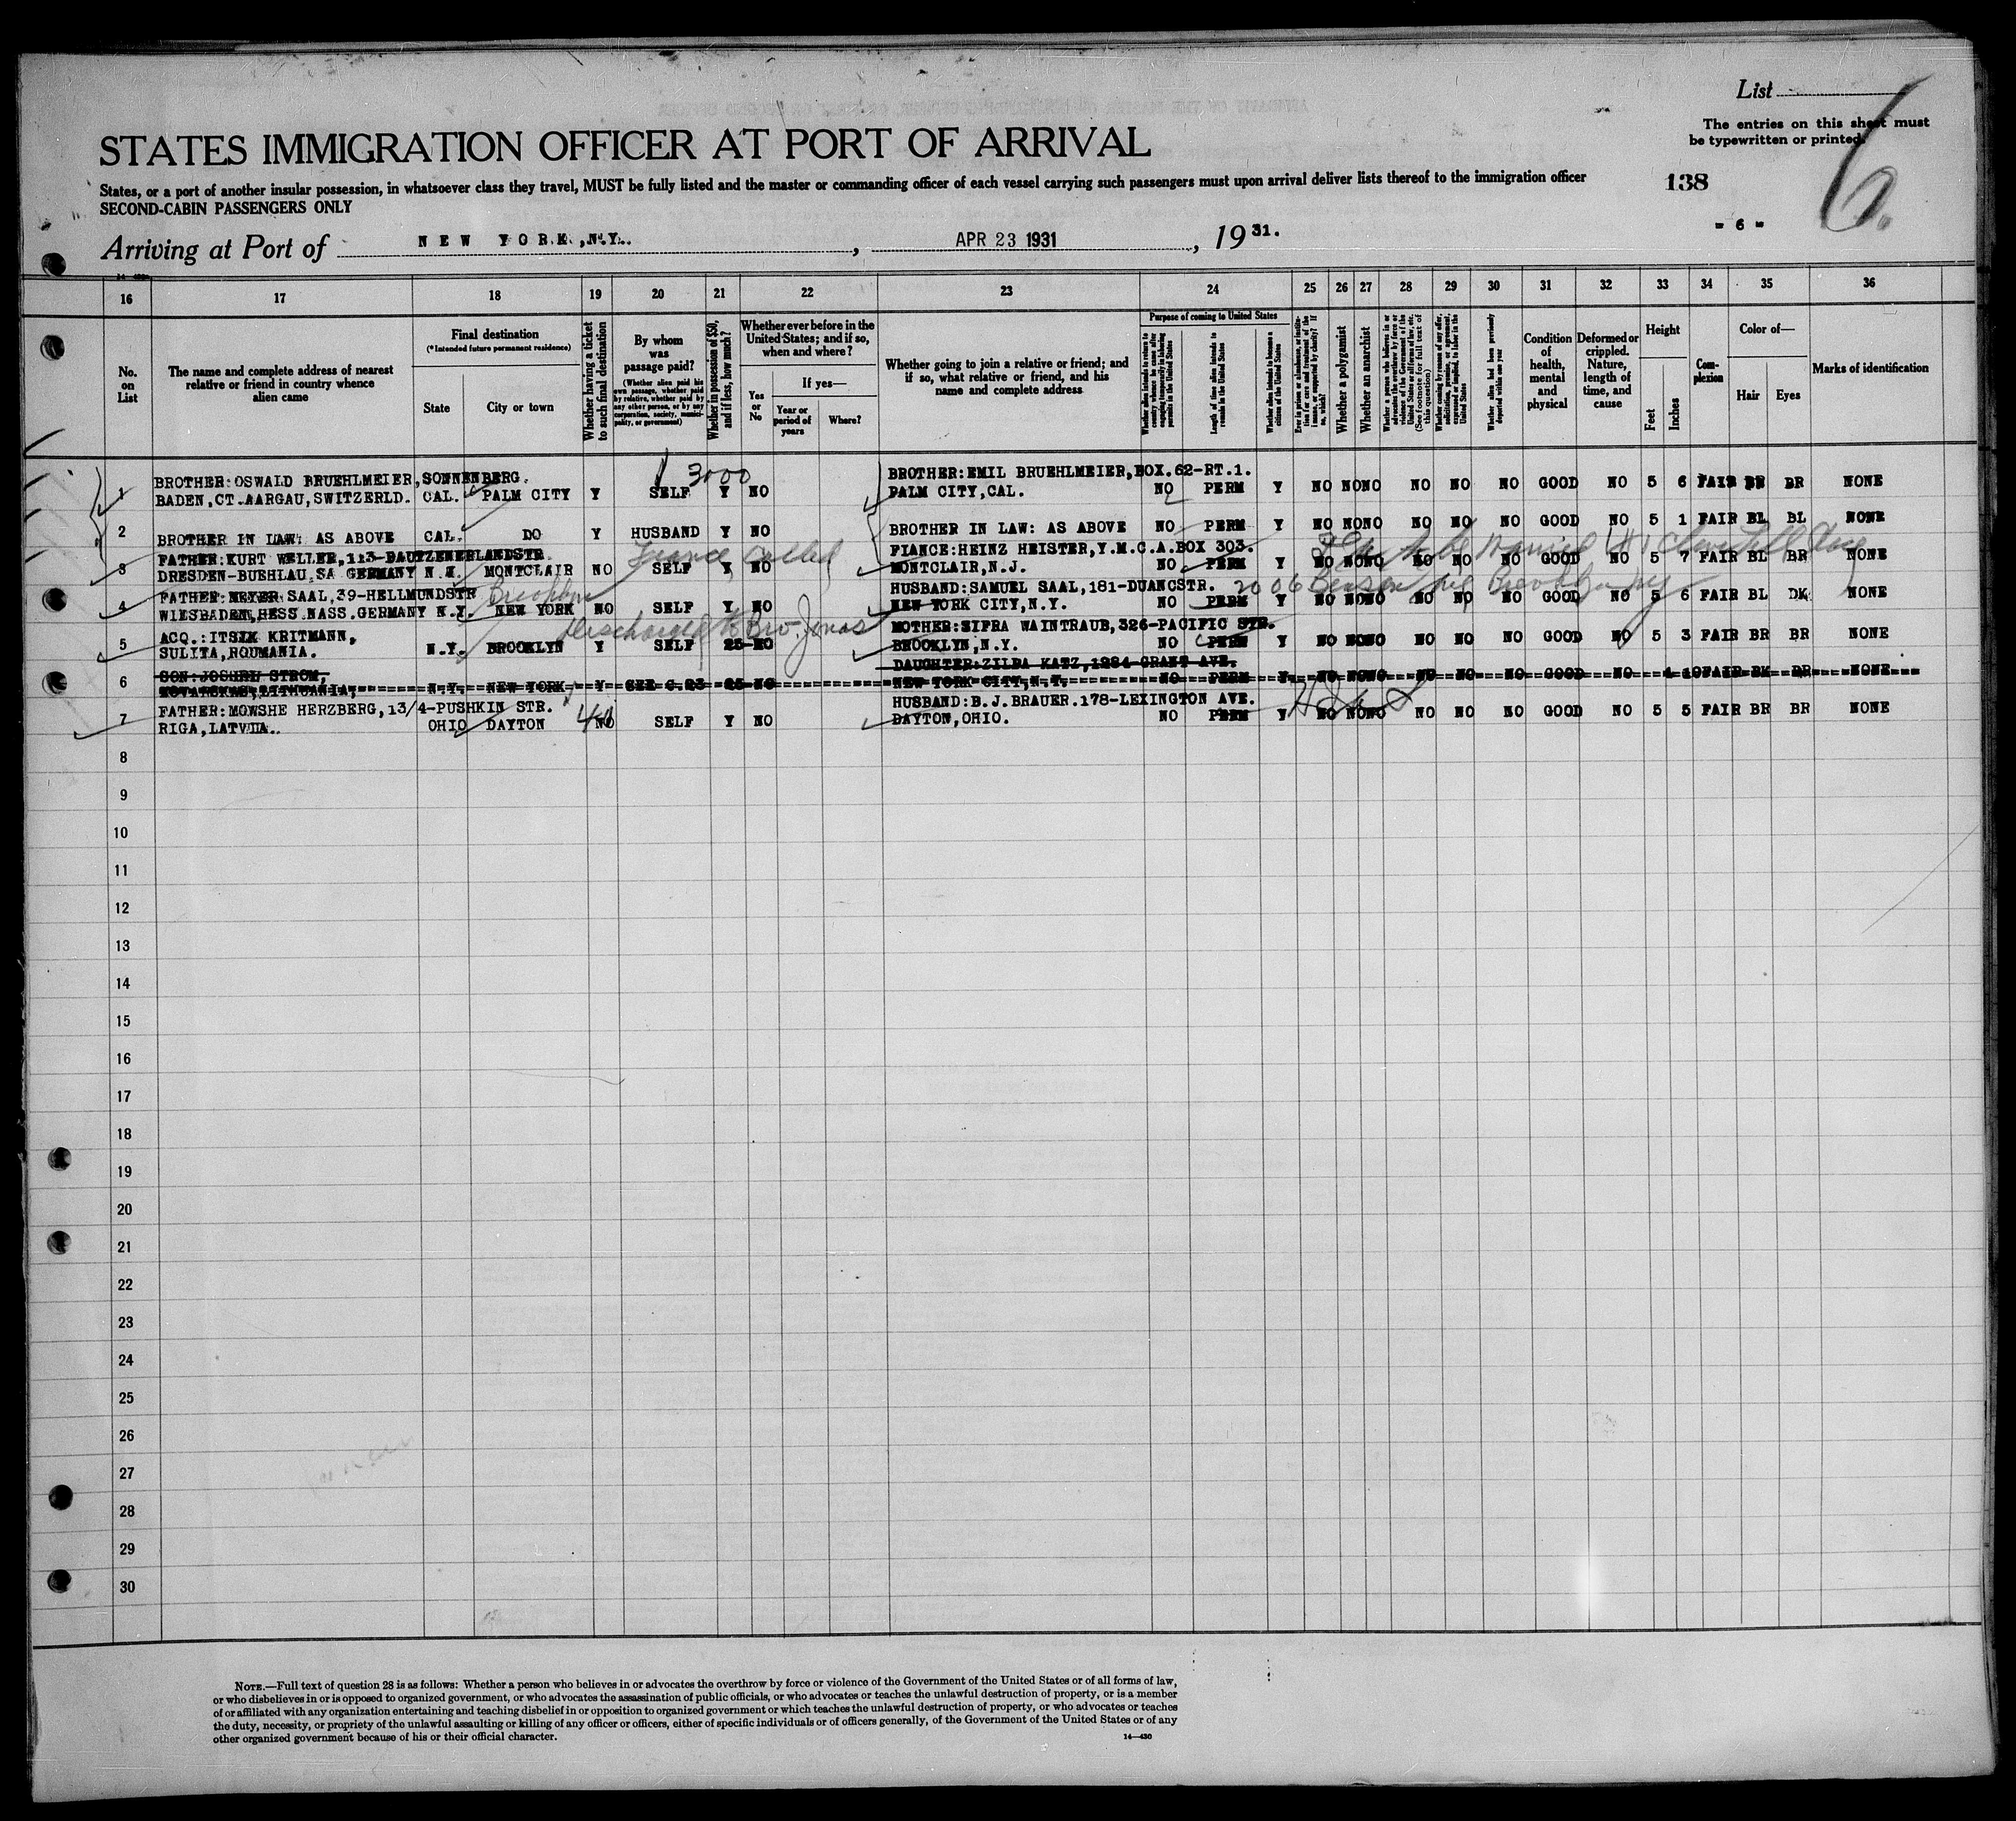 List
6
The entries on this sheet must
be typewritten or printed.
STATES IMMIGRATION OFFICER AT PORT OF ARRIVAL
States, or a port of another insular possession, in whatsoever class they travel, MUST be fully listed and the master or commanding officer of each vessel carrying such passengers must upon arrival deliver lists thereof to the immigration officer
138
SECOND-CABIN PASSENGERS ONLY
- 6 -
Arriving at Port of NEW YORK, N.Y. , APR 23 1931 , 19 31.
16 17 18 19 20 21 22 23 24 25 26 27 28 29 30 31 32 33 34 35 36
No. on List
The name and complete address of nearest relative or friend in country whence alien came
Final destination
(*Intended future permanent residence)
State
City or town
Whether having a ticket to such final destination
By whom was passage paid?
(Whether alien paid his own passage, whether paid by relative, whether paid by any other person, or by any corporation, society, municipality, or government)
Whether in possession of $50, and if less, how much?
Whether ever before in the United States; and if so, when and where?
Yes or No
If yes—
Year or period of years
Where?
Whether going to join a relative or friend; and if so, what relative or friend, and his name and complete address
Purpose of coming to United States
Whether alien intends to return to country whence he came after engaging temporarily in laboring pursuits in the United States
Length of time alien intends to remain in the United States
Whether alien intends to become a citizen of the United States
Ever in prison or almshouse, or institution for care and treatment of the insane, or supported by charity? If so, which?
Whether a polygamist
Whether an anarchist
Whether a person who believes in or advocates the overthrow by force or violence of the Government of the United States or all forms of law, etc. (See footnote for full text of this question)
Whether coming by reason of any offer, solicitation, promise, or agreement, expressed or implied, to labor in the United States
Whether alien had been previously deported within one year
Condition of health, mental and physical
Deformed or crippled. Nature, length of time, and cause
Height
Feet
Inches
Complexion
Color of—
Hair
Eyes
Marks of identification
3000
BROTHER:OSWALD BRUEHLMEIER,SONNENBERG. BROTHER:EMIL BRUEHLMEIER,BOX.62-RT.1.
1 BADEN,CT.AARGAU,SWITZERLD. CAL. PALM CITY Y SELF Y NO PALM CITY,CAL. NO PERM Y NO NO NO NO NO NO GOOD NO 5 6 FAIR BR BR NONE
2 BROTHER IN LAW: AS ABOVE CAL. DO Y HUSBAND Y NO BROTHER IN LAW: AS ABOVE NO PERM Y NO NO NO NO NO NO GOOD NO 5 1 FAIR BL BL NONE
Fiance called
FATHER:KURT WELLER,113-BAUTZENERLANDSTR. FIANCE:HEINZ HEISTER,Y.M.C.A.BOX 303.
3 DRESDEN-BUEHLAU,SA GERMANY N.J. MONTCLAIR NO SELF Y NO MONTCLAIR,N.J. NO PERM Y NO NO NO NO NO NO GOOD NO 5 7 FAIR BL BR NONE
Brooklyn
2006 Benson Ave Brooklyn Ny
FATHER:MEYER SAAL,39-HELLMUNDSTR HUSBAND:SAMUEL SAAL,181-DUANCSTR.
4 WIESBADEN,HESS NASS.GERMANY N.Y. NEW YORK NO SELF Y NO NEW YORK CITY,N.Y. NO PERM Y NO NO NO NO NO NO GOOD NO 5 6 FAIR BL DK NONE
discharged to Bro. Jonas
ACQ.:ITSIK KRITMANN, MOTHER:SIFRA WAINTRAUB,326-PACIFIC STR.
5 SULITA,ROUMANIA. N.Y. BROOKLYN Y SELF 25 NO BROOKLYN,N.Y. NO PERM Y NO NO NO NO NO NO GOOD NO 5 3 FAIR BR BR NONE
SON: STROM, DAUGHTER:ZILDA KATZ,1284-GRANT AVE.
6 LITHUANIA, N.Y. NEW YORK Y SEE C.23 25 NO NEW YORK CITY,N.Y. NO PERM Y NO NO NO NO NO NO GOOD NO 4 10 FAIR BK BR NONE
FATHER:MOWSHE HERZBERG,13/4-PUSHKIN STR. HUSBAND:B.J.BRAUER.178-LEXINGTON AVE.
7 RIGA,LATVIA. OHIO DAYTON NO SELF Y NO DAYTON,OHIO. NO PERM Y NO NO NO NO NO NO GOOD NO 5 5 FAIR BR BR NONE
8
9
10
11
12
13
14
15
16
17
18
19
20
21
22
23
24
25
26
27
28
29
30
NOTE.—Full text of question 28 is as follows: Whether a person who believes in or advocates the overthrow by force or violence of the Government of the United States or of all forms of law,
or who disbelieves in or is opposed to organized government, or who advocates the assassination of public officials, or who advocates or teaches the unlawful destruction of property, or is a member
of or affiliated with any organization entertaining and teaching disbelief in or opposition to organized government or which teaches the unlawful destruction of property, or who advocates or teaches
the duty, necessity, or propriety of the unlawful assaulting or killing of any officer or officers, either of specific individuals or of officers generally, of the Government of the United States or of any
other organized government because of his or their official character.
14—430